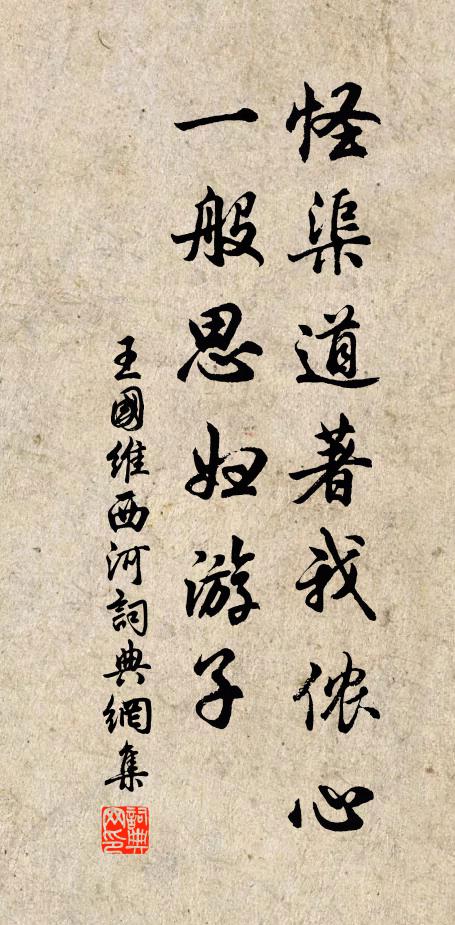 怪渠道著我侬心
一般思妇游子
王國維西河詞典網集
詞典网印